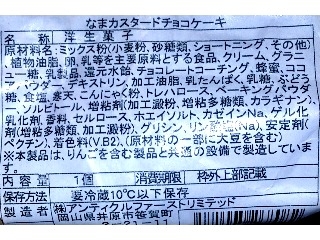 なまカスタードチョコケーキ
名称 洋生菓子
原材料名:ミックス粉(小麦粉、砂糖類、ショートニング、その他)
、植物油脂、卵、乳等を主要原料とする食品、クリーム、グラニ
ュー糖、乳製品、還元水飴、チョコレートコーチング、蜂蜜、ココ
アパウダー、デキストリン、加工油脂、乳たんぱく、乳糖、ぶどう
糖、食塩、寒天、こんにゃく粉、トレハロース、ベーキングパウダ
ー、ソルビトール、増粘剤(加工澱粉)、増粘剤(カラギナン)、
乳化剤、香料、セルロース、ホエイソルト、カゼインNa、ゲル化
剤(増粘多糖類、加工澱粉)、グリシン、リン酸塩(Na)、安定剤(
ペクチン)、着色料(V.B2)、(原材料の一部に大豆を含む)
※本製品は、りんごを含む製品と共通の設備で製造していま
す。
内容量 1個 消費期限 枠外上部記載
保存方法 要冷蔵10℃以下保存
製造者 ㈱アンティクルファーストリミテッド
岡山県井原市笹賀町
2-21-11